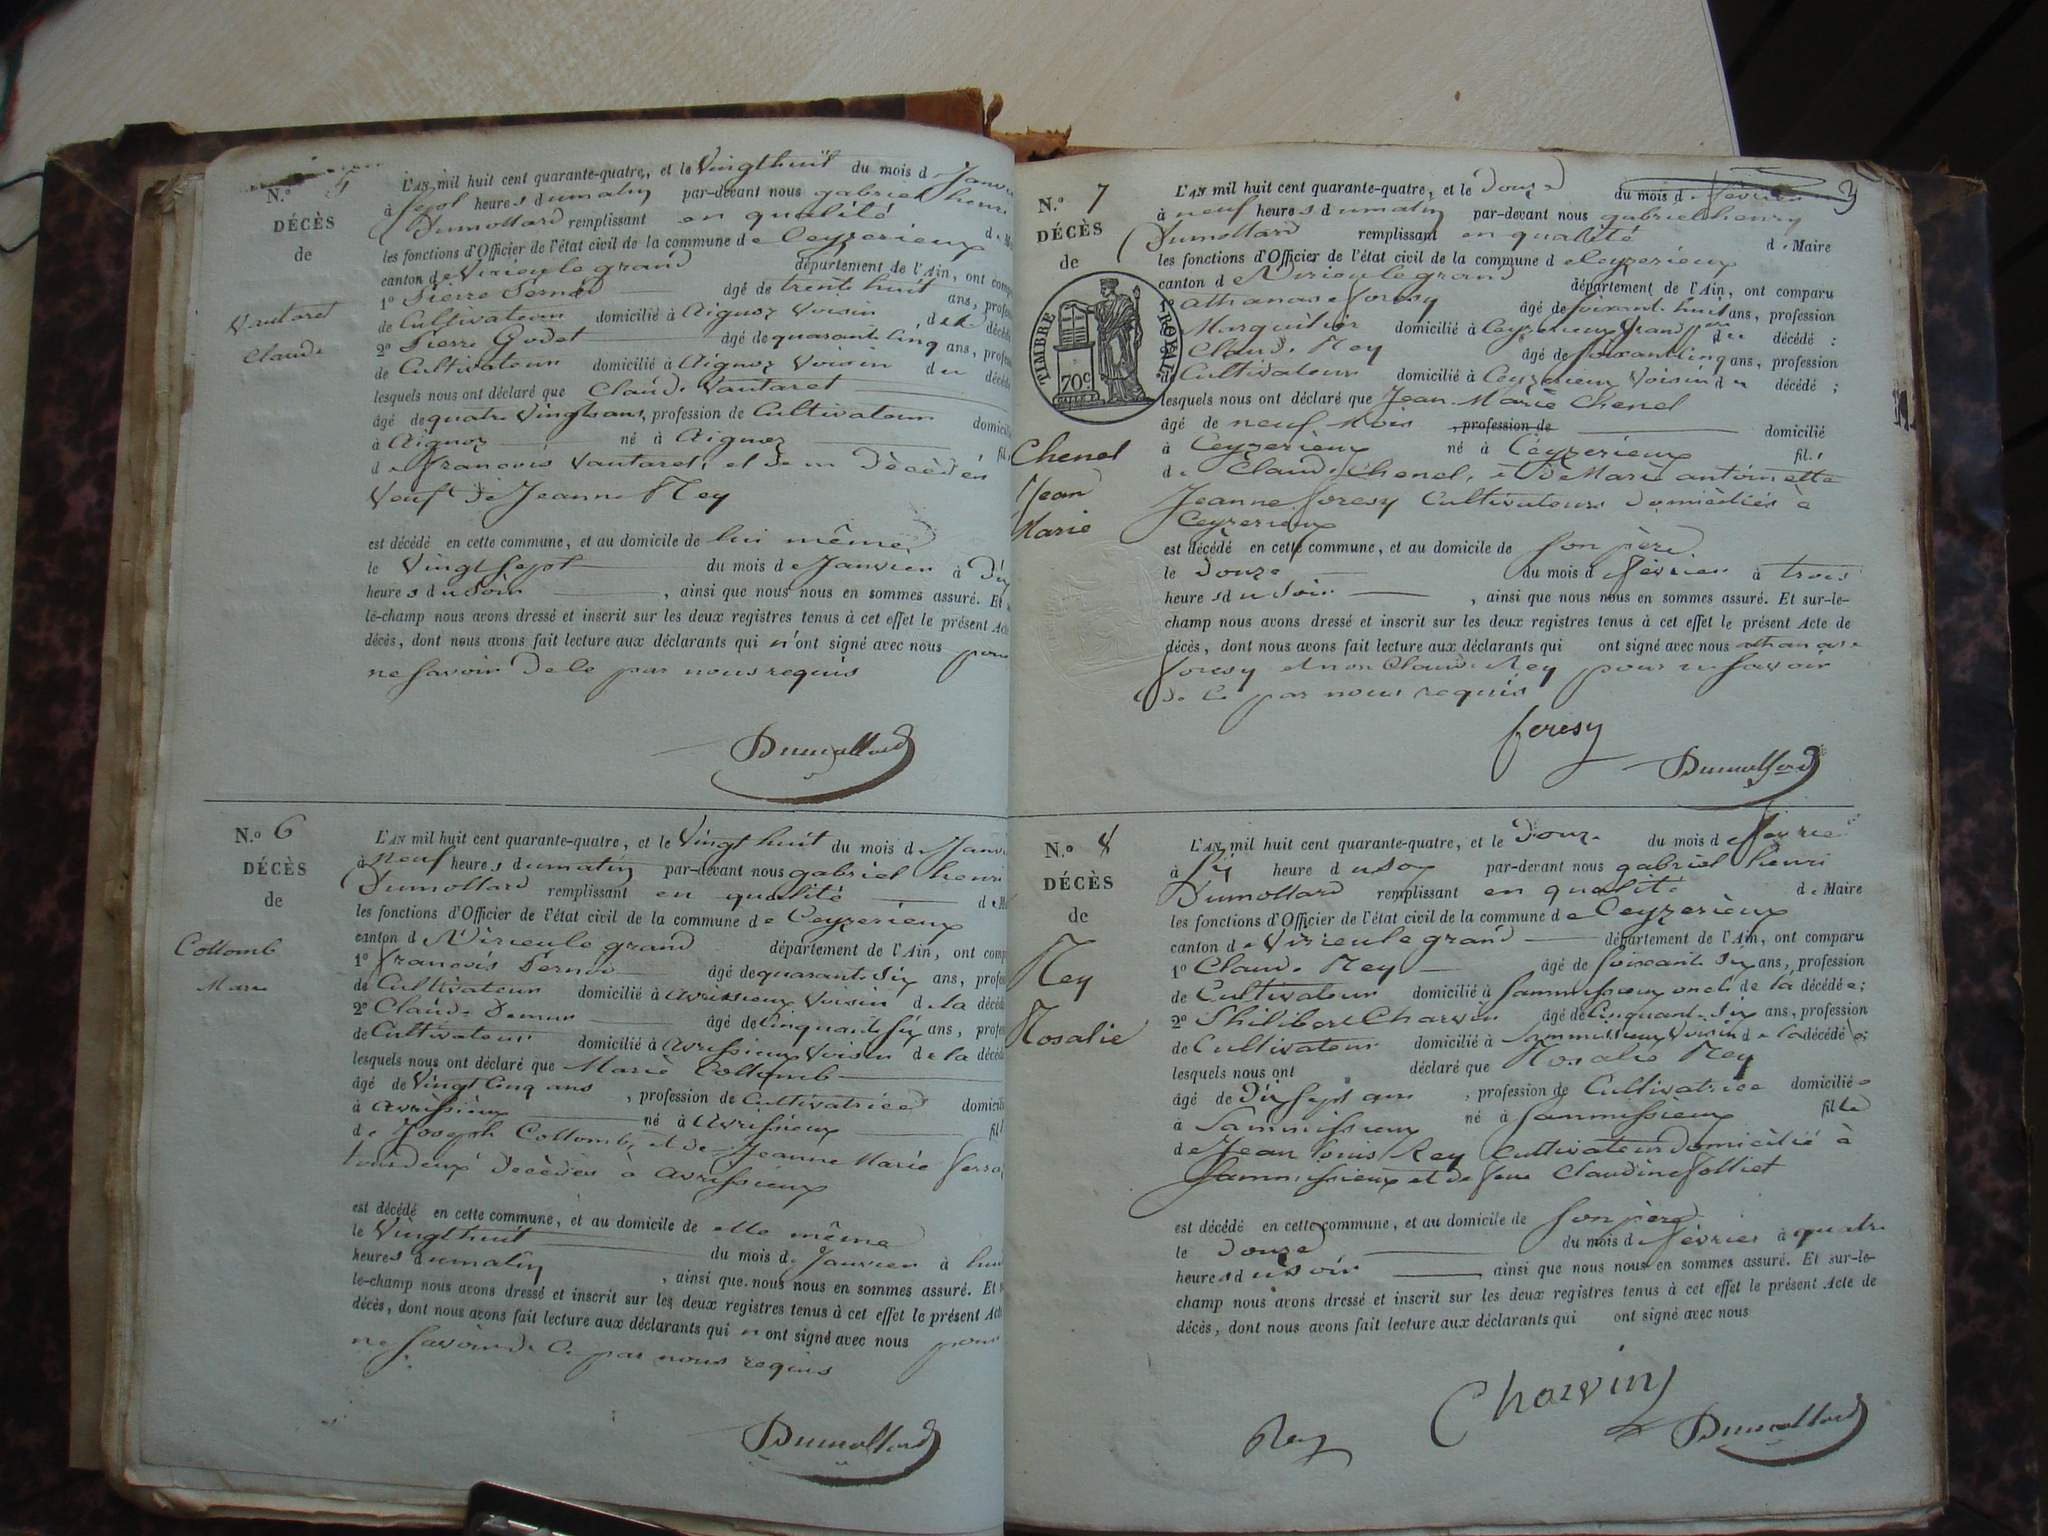 N.º 5
DÉCÈS
de
Vautaret
Claude
L'AN mil huit cent quarante-quatre, et le Vingt huit du mois d
à Sept heures du matin par-devant nous gabriel henri
Dumollard remplissant en qualité de
les fonctions d'Officier de l'état civil de la commune de Ceyzerieux
canton de Virieu le grand département de l'Ain, ont
1º Pierre Pernod âgé de trente huit ans,
de Cultivateur domicilié à Aignoz Voisin du
2º Pierre Godet âgé de quarante Cinq ans,
de Cultivateur domicilié à Aignoz Voisin du
lesquels nous ont déclaré que Claude Vautaret
âgé de quatre Vingts ans, profession de Cultivateur
à Aignoz né à Aignoz
de francois Vautaret, et de m Décédés
Veuf de Jeanne Rey
est décédé en cette commune, et au domicile de lui même
le Vingt Sept du mois de Janvier à Dix
heures du Soir , ainsi que nous nous en sommes assuré. Et
le-champ nous avons dressé et inscrit sur les deux registres tenus à cet effet le présent
décès, dont nous avons fait lecture aux déclarants qui n'ont signé avec nous pour
ne Savoir de ce par nous requis
Dumollard
N.º 6
DÉCÈS
de
Collomb
Marie
L'AN mil huit cent quarante-quatre, et le Vingt huit du mois de
à Neuf heures du matin par-devant nous gabriel henri
Dumollard remplissant en qualité
les fonctions d'Officier de l'état civil de la commune de Ceyzerieux
canton de Virieu le grand département de l'Ain, ont
1º francois Pernod âgé de quarante Six ans,
de Cultivateur domicilié à avrissieux Voisin de la
2º Claude âgé de Cinquante Six ans,
de Cultivateur domicilié à avrissieux Voisin de la
lesquels nous ont déclaré que Marie Collomb
âgé de Vingt Cinq ans , profession de Cultivatrice
à avrissieux né à avrissieux
de Joseph Collomb, et de Jeanne Marie
tous deux Décédés à avrissieux
est décédé en cette commune, et au domicile de elle même
le Vingt huit du mois de Janvier à
heures du matin , ainsi que nous nous en sommes assuré. Et
le-champ nous avons dressé et inscrit sur les deux registres tenus à cet effet le présent
décès, dont nous avons fait lecture aux déclarants qui n'ont signé avec nous pour
ne Savoir de Ce par nous requis
Dumollard
N.º 7
DÉCÈS
de
TIMBRE ROYAL
70c
Chenel
Jean
Marie
L'AN mil huit cent quarante-quatre, et le Douze du mois de février
à neuf heures du matin par-devant nous gabriel henry
Dumollard remplissant en qualité de Maire
les fonctions d'Officier de l'état civil de la commune de Ceyzerieux
canton de Virieu le grand département de l'Ain, ont comparu
1º athanase foresy âgé de Soixante huit ans, profession
Marguilier domicilié à Ceyzerieux Grand père du décédé ;
Claude Rey âgé de Soixante Cinq ans, profession
de Cultivateur domicilié à Ceyzerieux Voisin du décédé ;
lesquels nous ont déclaré que Jean Marie Chenel
âgé de neuf Mois , profession de domicilié
à Ceyzerieux né à Ceyzerieux fils
de Claude Chenel, et De Marie antoinette
Jeanne foresy Cultivateurs Domiciliés à
Ceyzerieux
est décédé en cette commune, et au domicile de Son père
le Douze du mois de février à trois
heures du Soir , ainsi que nous nous en sommes assuré. Et sur-le-
champ nous avons dressé et inscrit sur les deux registres tenus à cet effet le présent Acte de
décès, dont nous avons fait lecture aux déclarants qui ont signé avec nous athanase
foresy et non Claude Rey pour ne Savoir
de Ce par nous requis
foresy
Dumollard
N.º 8
DÉCÈS
de
Rey
Rosalie
L'AN mil huit cent quarante-quatre, et le Douze du mois de fevrier
à Six heure du Soir par-devant nous gabriel henri
Dumollard remplissant en qualité de Maire
les fonctions d'Officier de l'état civil de la commune de Ceyzerieux
canton de Virieu le grand département de l'Ain, ont comparu
1º Claude Rey âgé de Soixante Dix ans, profession
de Cultivateur domicilié à Sammissieux oncle de la décédée ;
2º Philibert Charvin âgé de Cinquante Six ans, profession
de Cultivateur domicilié à Sammissieux Voisin de la décédée ;
lesquels nous ont déclaré que Rosalie Rey
âgé de Dix Sept ans , profession de Cultivatrice domiciliée
à Sammissieux né à Sammissieux fille
de Jean Louis Rey Cultivateur Domicilié à
Sammissieux et de feue Claudine folliet
est décédé en cette commune, et au domicile de Son père
le Douze du mois de février à quatre
heures du Soir ainsi que nous nous en sommes assuré. Et sur-le-
champ nous avons dressé et inscrit sur les deux registres tenus à cet effet le présent Acte de
décès, dont nous avons fait lecture aux déclarants qui ont signé avec nous
Charvin
Rey
Dumollard